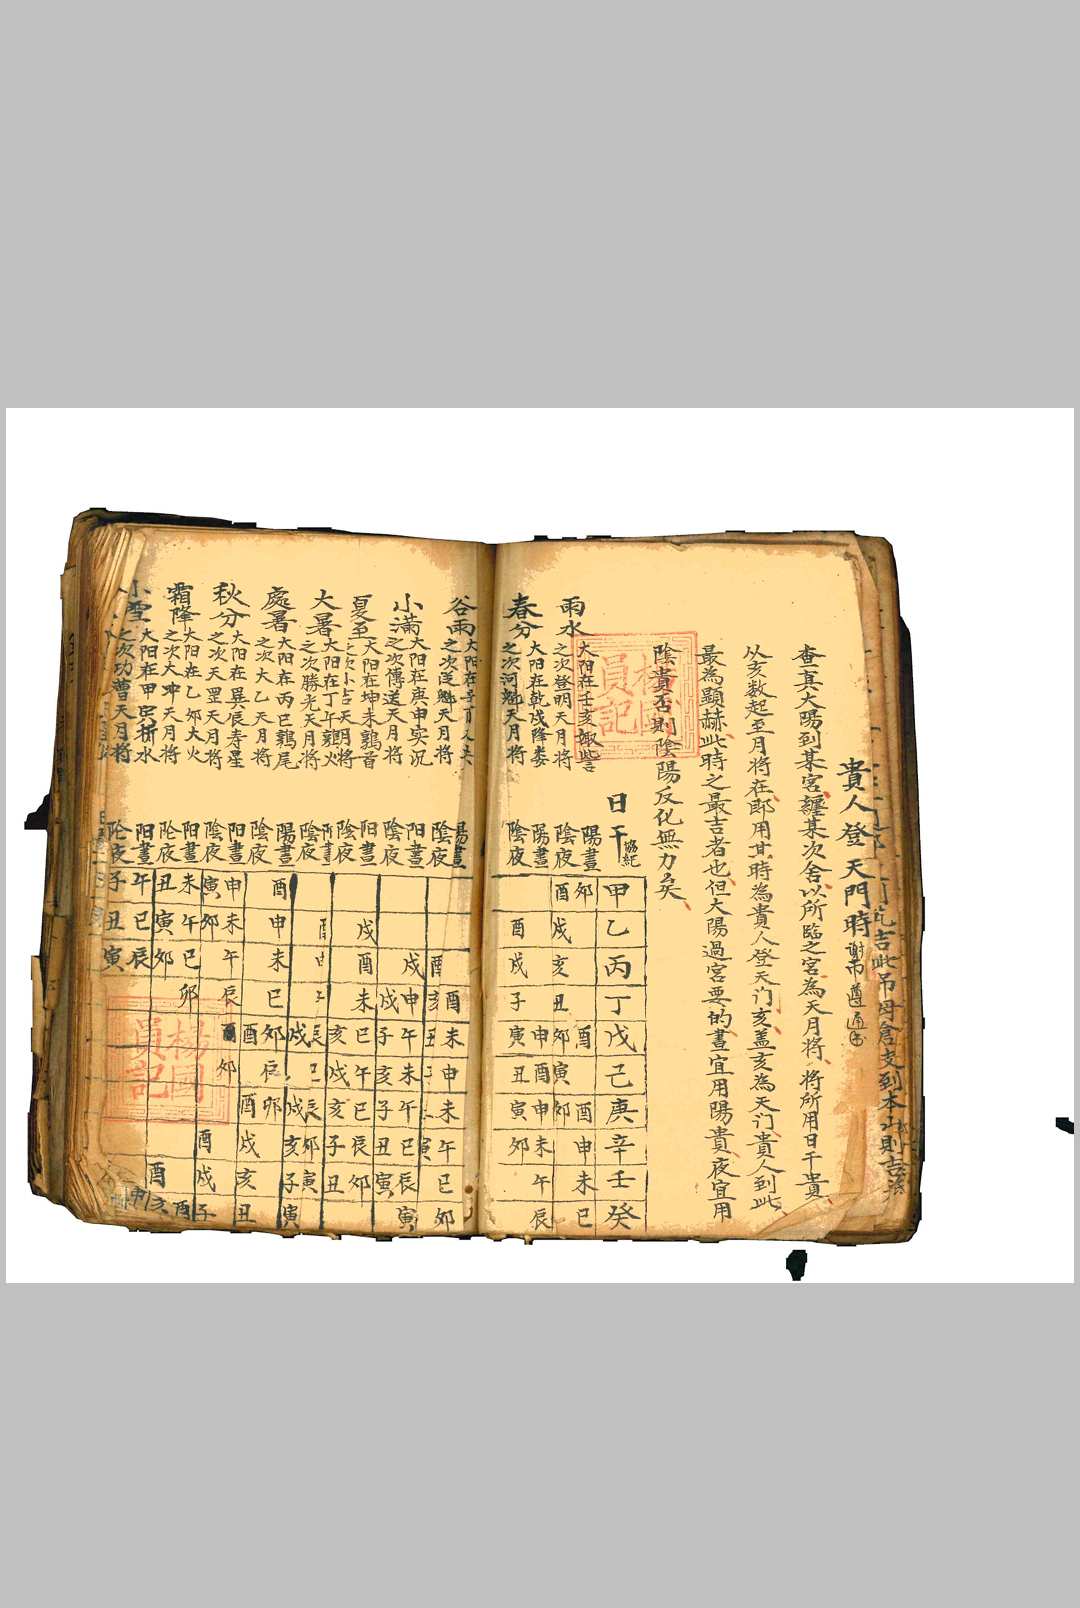 貴人登天門時
查真太陽到某宮纏某次舍以所臨之宮為天月將將所用日干貴
从亥数起至月將在即用其時為貴人登天门亥盖亥為天门貴人到此
最為顯赫此時之最吉者也但大陽過宮要的晝宜用陽貴夜宜用
陰貴否則陰陽反化無力矣
楊國員記
日干 協紀
甲
乙
丙
丁
戊
己
庚
辛
壬
癸
雨水
大阳在壬亥娵訾
之次登明天月將
陽晝 卯 酉 申 未 巳
陰夜 酉 戌 亥 丑 卯 寅 卯
春分
大阳在乾戌降娄
之次河魁天月將
陽晝 申 酉 申 未 午 辰
陰夜 酉 戌 子 寅 丑 寅 卯
谷雨
之次從魁天月將
陽晝 酉 未 申 未 午 巳 卯
陰夜 酉 亥
小满
大阳在庚申实沉
之次傳送天月將
阳晝 戌 申 午 未 午 巳 辰 寅
陰夜 戌 子 亥 子 丑 寅
夏至
大阳在坤未鶉首
之次小吉天月將
阳晝 戌 酉 未 巳 午 巳 辰 卯
陰夜 亥 戌 亥 子 丑
大暑
大阳在丁午鶉火
之次勝光天月將
陰夜 戌 戌 亥 子 寅
處暑
大阳在丙巳鶉尾
之次太乙天月將
陽晝 酉 申 未 巳 卯 辰 卯
陰夜 酉 酉 戌 亥 丑
秋分
大阳在巽辰寿星
之次天罡天月將
阳晝 申 未 午 辰 卯
陰夜 寅 卯 酉 戌 子
霜降
大阳在乙卯大火
之次大冲天月將
阳晝 未 午 巳 卯
陰夜 丑 寅 卯 酉
小雪
大阳在甲寅析水
之次功曹天月將
阳晝 午 巳 辰
陰夜 子 丑 寅
楊國員記